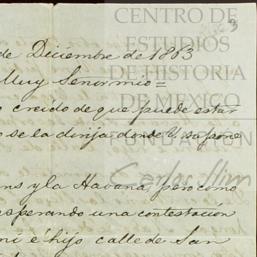 CENTRO DE
ESTUDIOS
DE HISTORIA
DE MEXICO
FUNDACIÓN
Carlos Slim
3
de Diciembre de 1863
Muy Señor mio =
creido de que puede estar
se la dirija donde V. supone
ns y la Havana, pero como
esperando una contestacion
é hijo calle de San